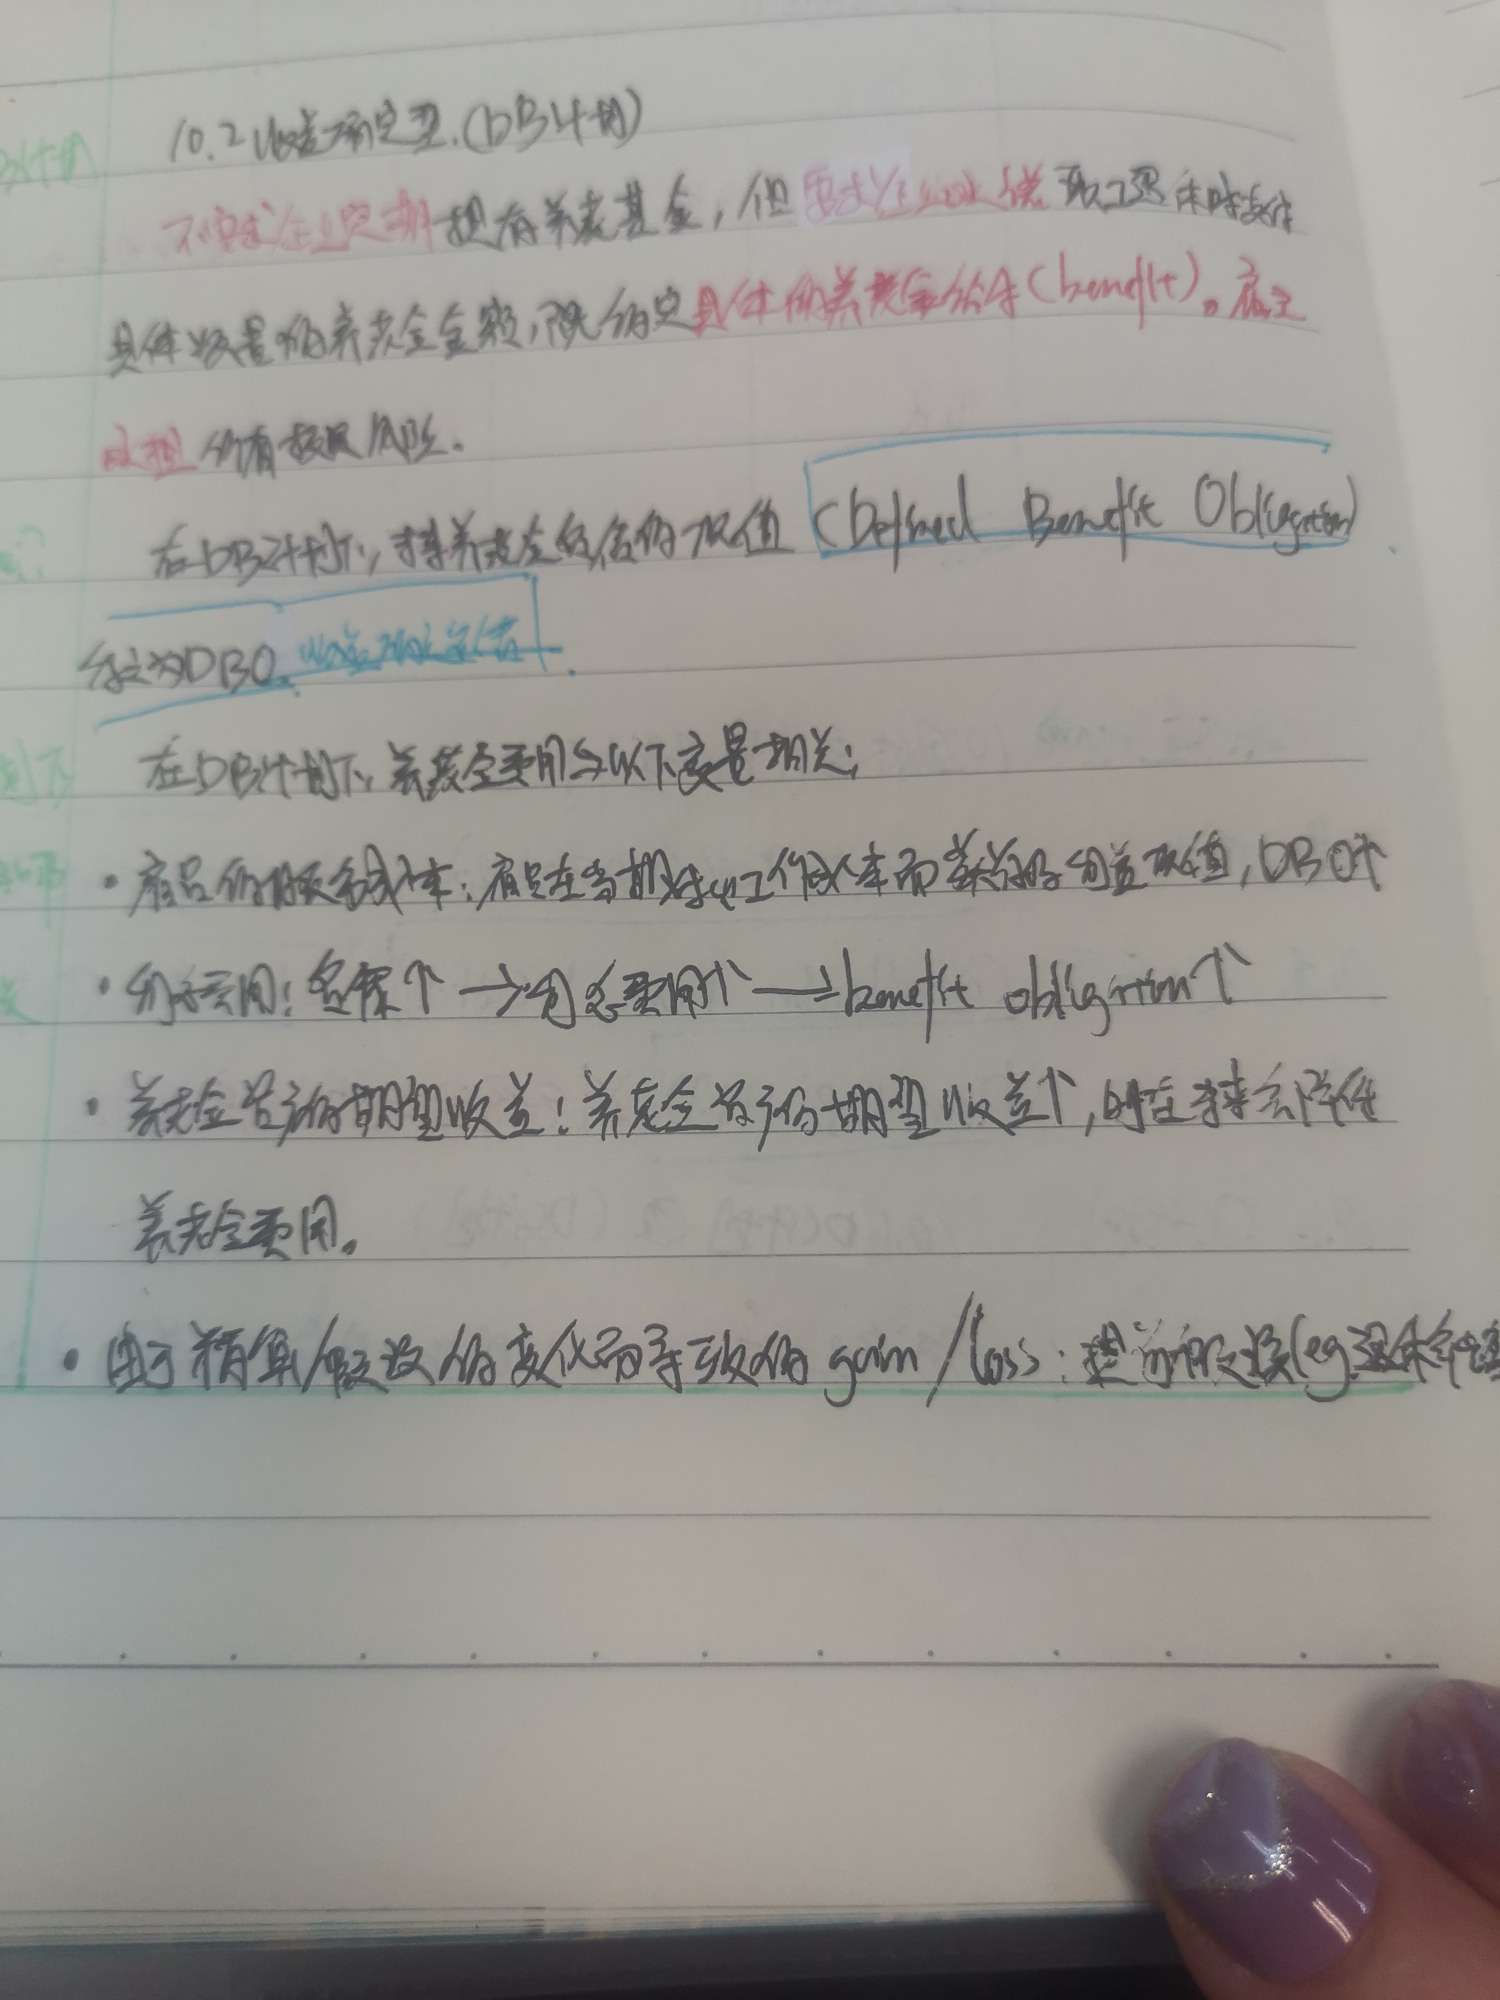 10.2 收益确定型.(DB计划)
不要求企业定期提存养老基金,但要求企业承诺职工退休时支付
具体数量的养老金金额,既约定具体的养老金给付(benefit)。雇主
承担所有投资风险.
在DB计划下,将养老金负债的现值(Defined Benefit Obligation)
定义为DBO.收益确定负债
在DB计划下,养老金费用与以下变量相关:
• 雇员的服务成本:雇员在当期 工作 而获得的 益现值,DBO↑
• 利息费用:负债↑→利息费用↑→benefit obligation↑
• 养老金资产的期望收益:养老金资产的期望收益↑,时 降低
养老金费用。
• 由于精算假设的变化而导致的gain/loss: 前 (eg.退休年